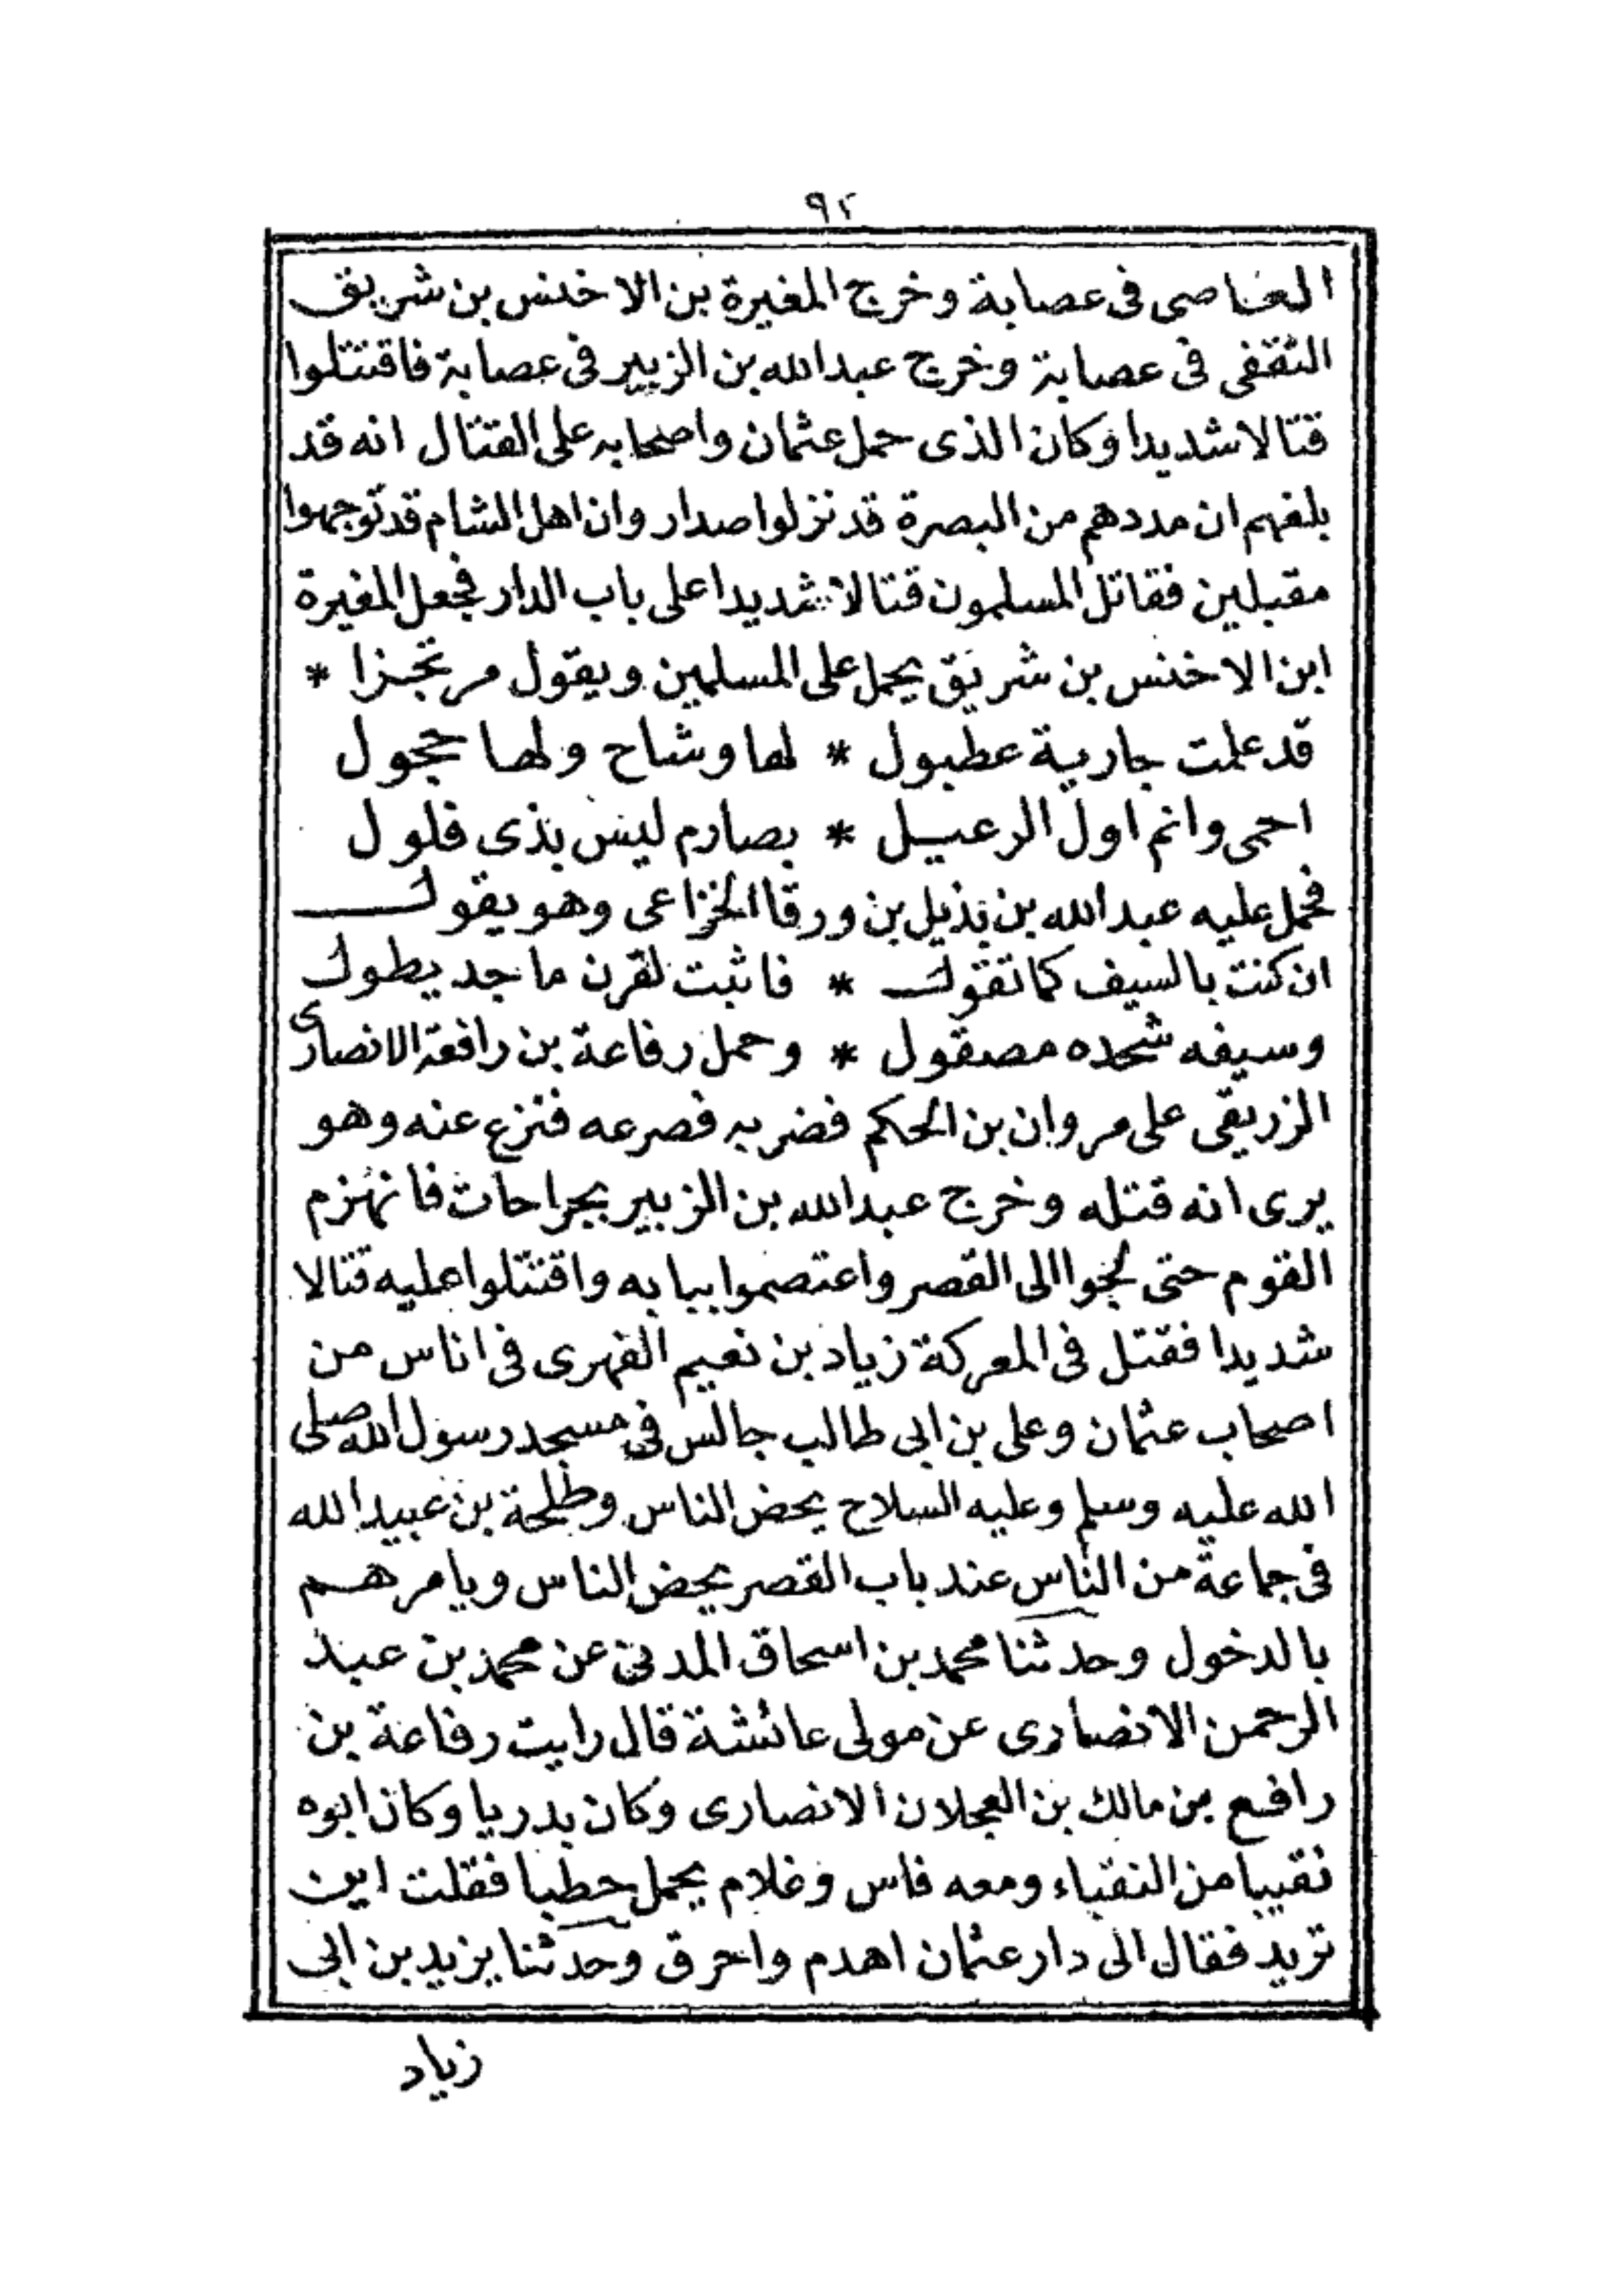 ٩٢
العاصى فى عصابة وخرج المغيرة بن الاخنس بن شريق
الثقفى فى عصابة وخرج عبدالله بن الزبير فى عصابة فاقتتلوا
قتالا شديدا وكان الذى حمل عثمان واصحابه على القتال انه قد
بلغهم ان مددهم من البصرة قد نزلوا صدار وان اهل الشام قد توجهوا
مقبلين فقاتل المسلمون قتالا شديدا على باب الدار فجعل المغيرة
ابن الاخنس بن شريق يحمل على المسلمين ويقول مرتجزا *
قد علمت جارية عطبول * لها وشاح ولها حجول
احمى وانم اول الرعيل * بصارم ليس بذى فلول
فحمل عليه عبدالله بن بذيل بن ورقا الخزاعى وهو يقول
ان كنت بالسيف كما تقول * فاثبت لقرن ماجد يطول
وسيفه شحده مصقول * وحمل رفاعة بن رافعة الانصارى
الزريقى على مروان بن الحكم فضربه فصرعه فنزع عنه وهو
يرى انه قتله وخرج عبدالله بن الزبير بجراحات فانهزم
القوم حتى لجوا الى القصر واعتصموا ببابه واقتتلوا عليه قتالا
شديدا فقتل فى المعركة زياد بن نعيم الفهرى فى اناس من
اصحاب عثمان وعلى بن ابى طالب جالس فى مسجد رسول الله صلى
الله عليه وسلم وعليه السلاح يحض الناس وطلحة بن عبيد الله
فى جماعة من الناس عند باب القصر يحض الناس ويامرهم
بالدخول وحدثنا محمد بن اسحاق المدنى عن محمد بن عبد
الرحمن الانصارى عن مولى عائشة قال رايت رفاعة بن
رافع بن مالك بن العجلان الانصارى وكان بدريا وكان ابوه
نقيبا من النقباء ومعه فاس وغلام يحمل حطبا فقلت اين
تريد فقال الى دار عثمان اهدم واحرق وحدثنا يزيد بن ابى
زياد